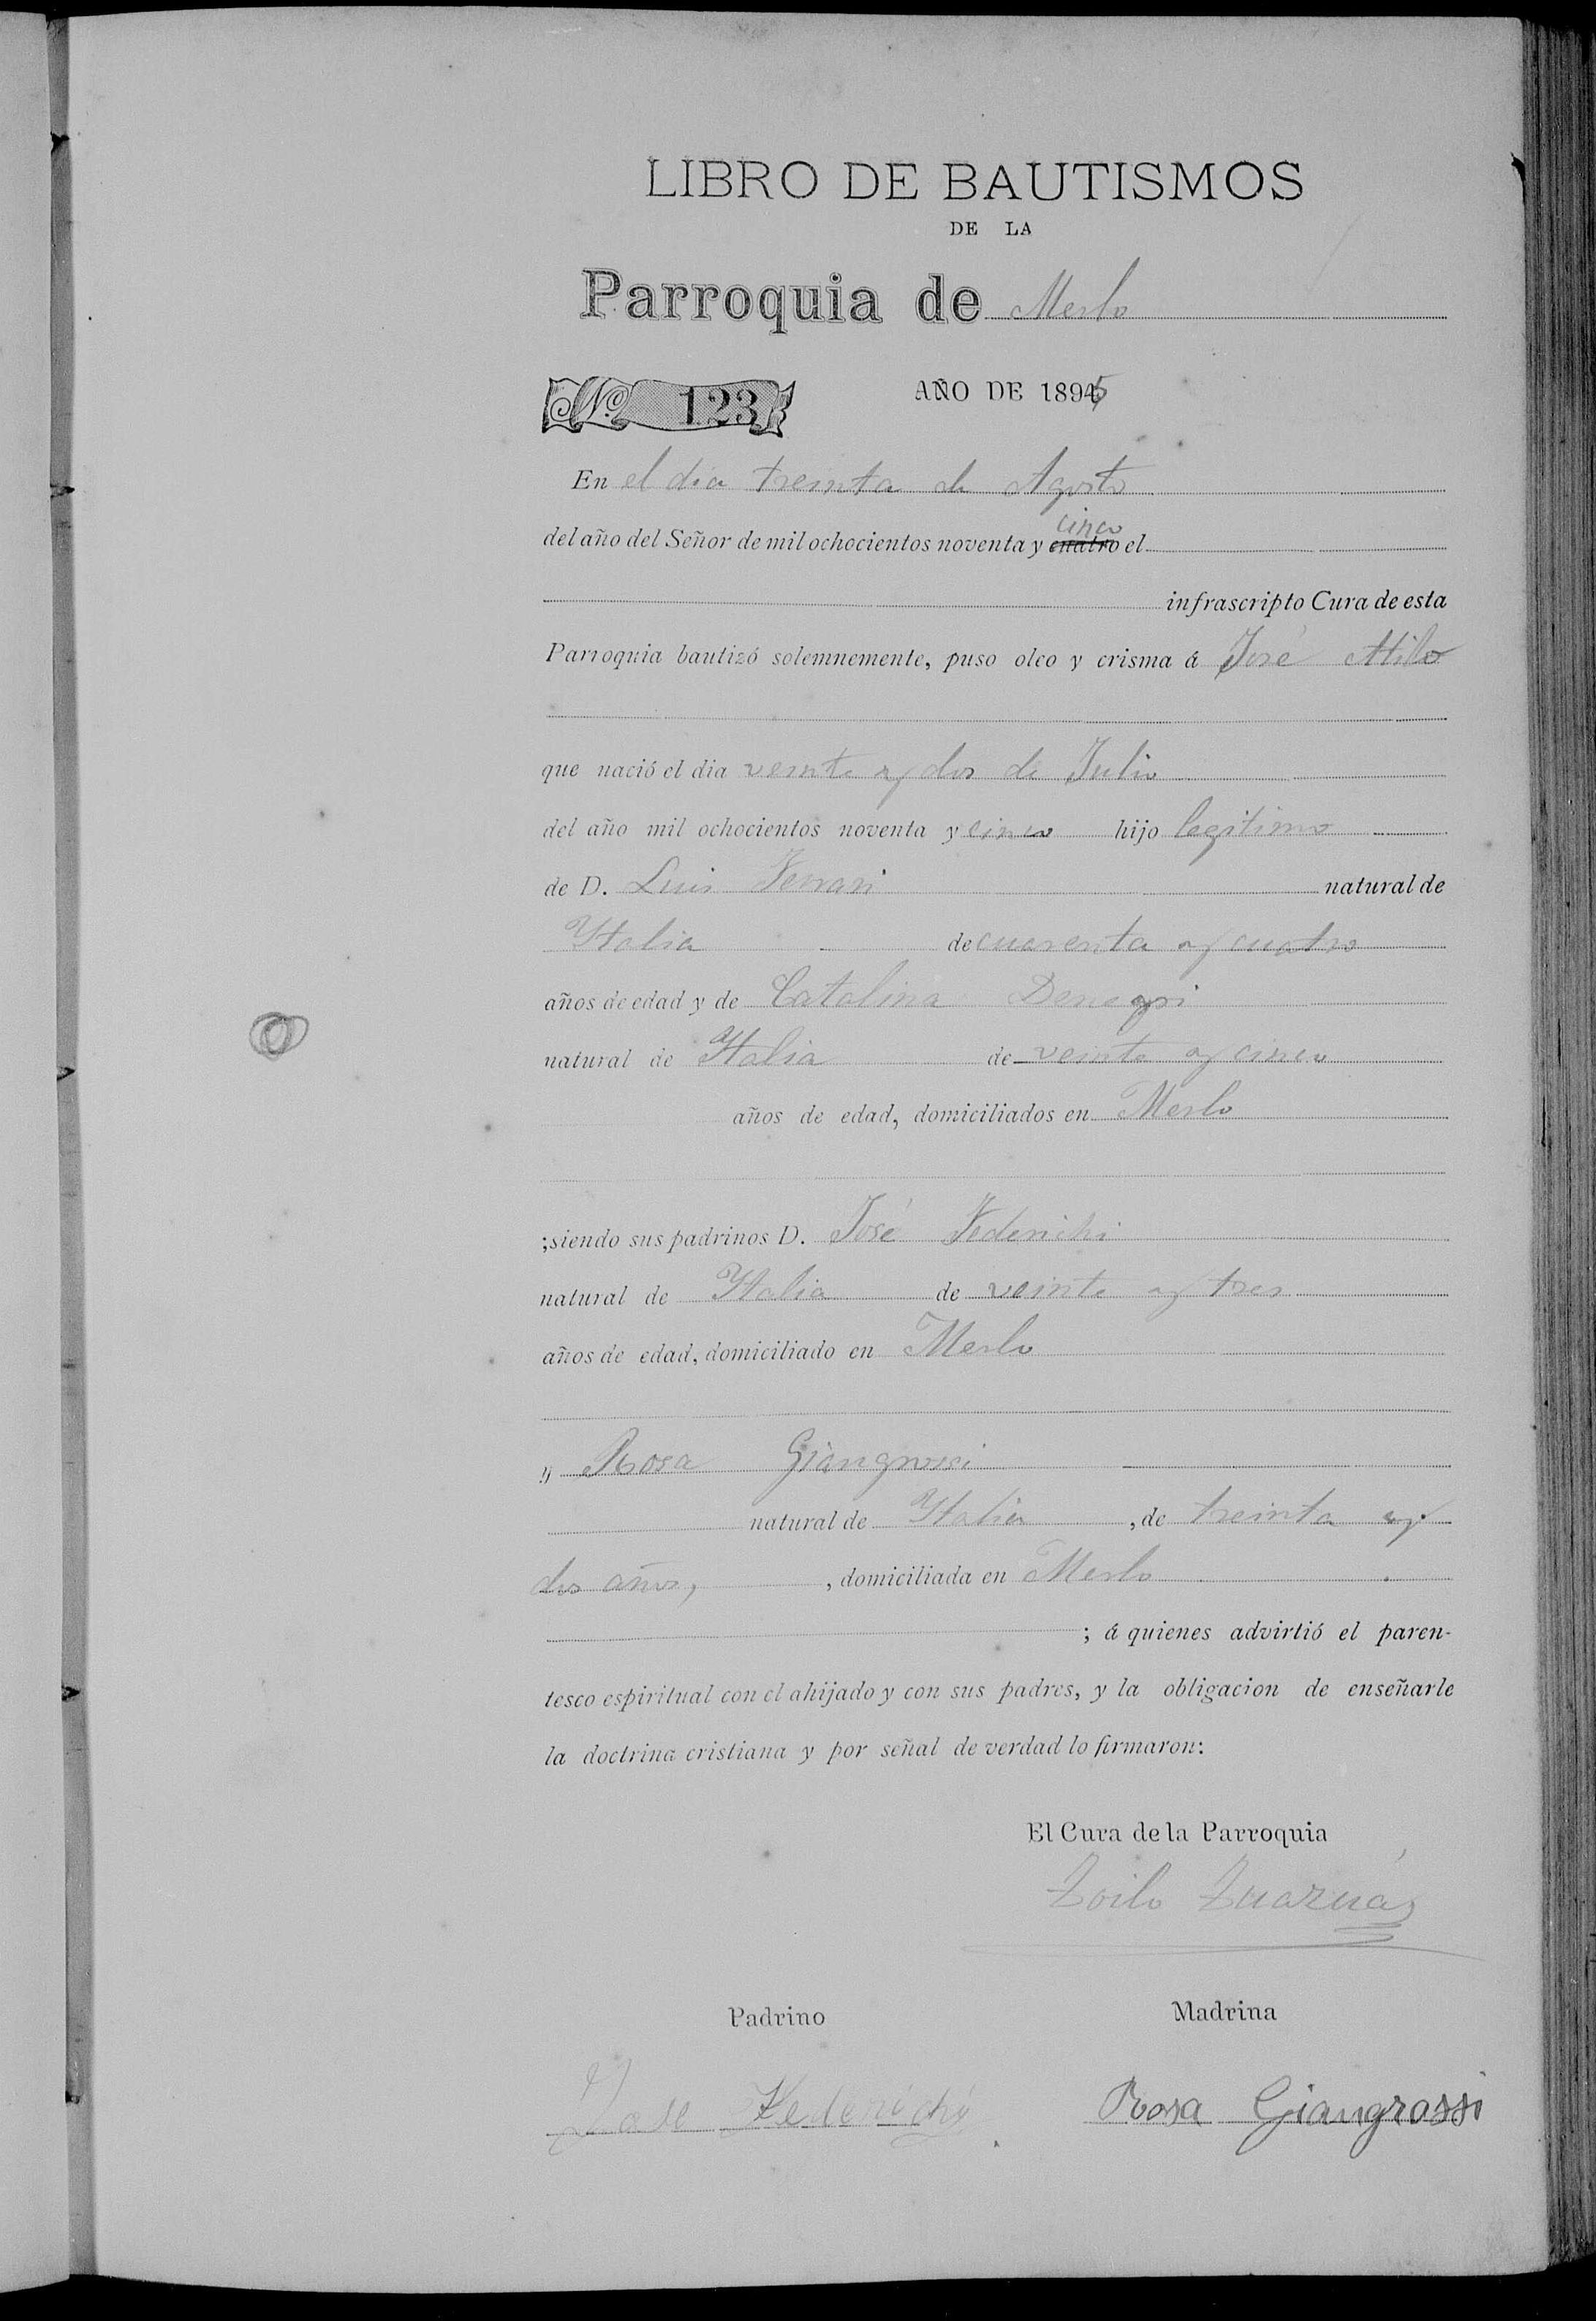 LIBRO DE BAUTISMOS
DE LA
Parroquia de Merlo
No. 123
AÑO DE 1895
En el dia treinta de Agosto
cinco
del año del Señor de mil ochocientos noventa y cuatro el
infrascripto Cura de esta
Parroquia bautizó solemnemente, puso oleo y crisma á José
que nació el dia veinte y dos de Julio
del año mil ochocientos noventa y cinco hijo legitimo
de D. Luis Ferrari natural de
Ytalia de cuarenta y cuatro
años de edad y de Catalina Denegri
natural de Ytalia de veinte y cinco
años de edad, domiciliados en Merlo
;siendo sus padrinos D. José Federichi
natural de Ytalia de veinte y tres
años de edad, domiciliado en Merlo
y Rosa Giangrossi
natural de Ytalia , de treinta y
dos años, , domiciliada en Merlo
; á quienes advirtió el paren-
tesco espiritual con el ahijado y con sus padres, y la obligacion de enseñarle
la doctrina cristiana y por señal de verdad lo firmaron:
El Cura de la Parroquia
Zoilo
Padrino Madrina
Jose Federichi Rosa Giangrossi